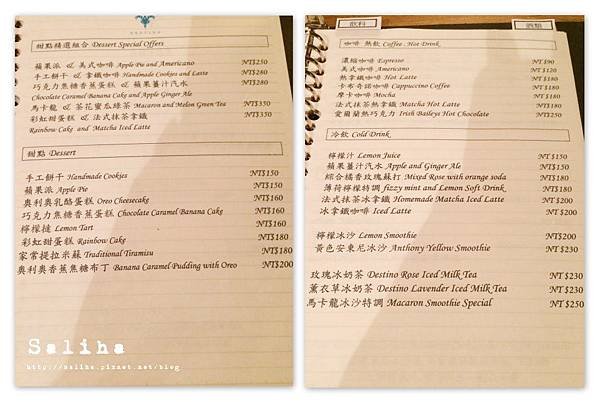 甜點精選組合 Dessert Special Offers
蘋果派 & 美式咖啡 Apple Pie and Americano NT$250
手工餅干 & 拿鐵咖啡 Handmade Cookies and Latte NT$280
巧克力焦糖香蕉蛋糕 & 蘋果薑汁汽水 NT$280
Chocolate Caramel Banana Cake and Apple Ginger Ale
馬卡龍 & 茶花蜜瓜綠茶 Macaron and Melon Green Tea NT$350
彩虹甜蛋糕 & 法式抹茶拿鐵 NT$350
Rainbow Cake and Matcha Iced Latte
甜點 Dessert
手工餅干 Handmade Cookies NT$150
蘋果派 Apple Pie NT$150
奧利奧乳酪蛋糕 Oreo Cheesecake NT$160
巧克力焦糖香蕉蛋糕 Chocolate Caramel Banana Cake NT$160
檸檬撻 Lemon Tart NT$160
彩虹甜蛋糕 Rainbow Cake NT$180
家常提拉米蘇 Traditional Tiramisu NT$180
奧利奧香蕉焦糖布丁 Banana Caramel Pudding with Oreo NT$200
Saliha
http://saliha.pixnet.net/blog
飲料
酒類
咖啡 熱飲 Coffee . Hot Drink
濃縮咖啡 Espresso NT$90
美式咖啡 Americano NT$120
熱拿鐵咖啡 Hot Latte NT$180
卡布奇諾咖啡 Cappuccino Coffee NT$180
摩卡咖啡 Mocha NT$180
法式抹茶熱拿鐵 Matcha Hot Latte NT$180
愛爾蘭熱巧克力 Irish Baileys Hot Chocolate NT$250
冷飲 Cold Drink
檸檬汁 Lemon Juice NT$150
蘋果薑汁汽水 Apple and Ginger Ale NT$150
綜合橘香玫瑰蘇打 Mixed Rose with orange soda NT$180
薄荷檸檬特調 fizzy mint and Lemon Soft Drink NT$180
法式抹茶冰拿鐵 Homemade Matcha Iced Latte NT$200
冰拿鐵咖啡 Iced Latte NT $200
檸檬冰沙 Lemon Smoothie NT$200
黃色安東尼冰沙 Anthony Yellow Smoothie NT$230
玫瑰冰奶茶 Destino Rose Iced Milk Tea NT$230
薰衣草冰奶茶 Destino Lavender Iced Milk Tea NT$230
馬卡龍冰沙特調 Macaron Smoothie Special NT$250